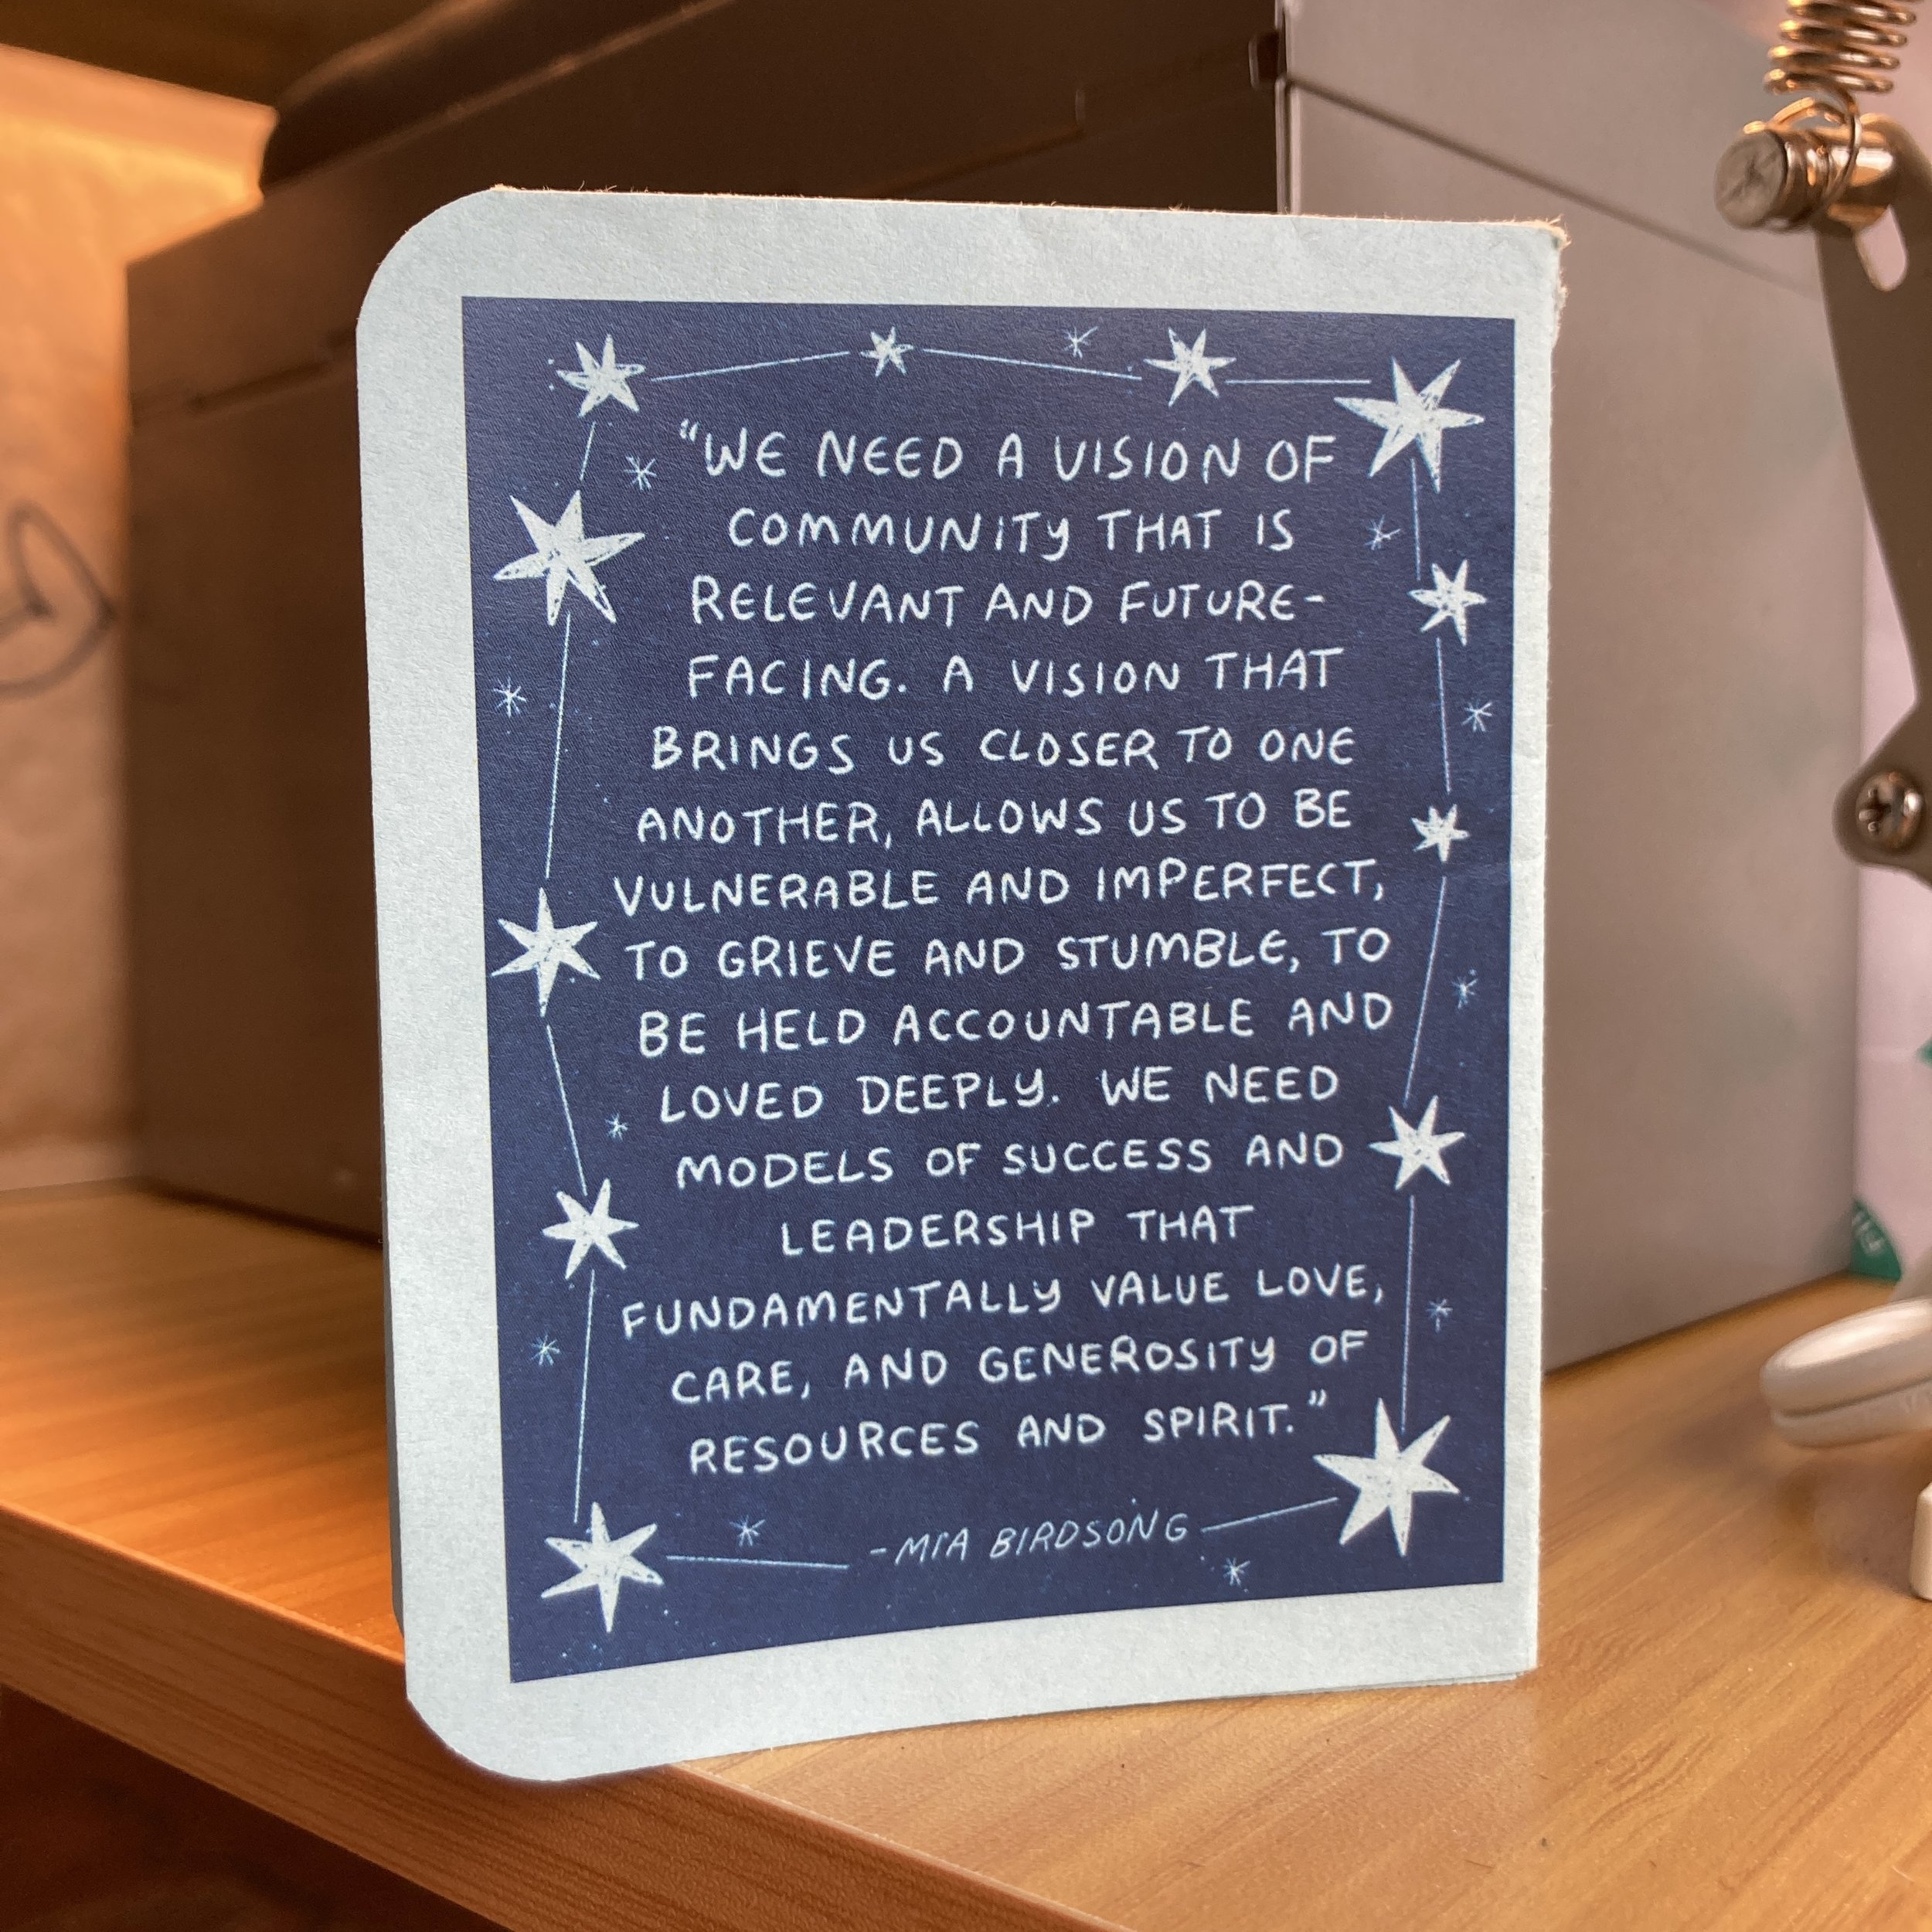 “WE NEED A VISION OF
COMMUNITY THAT IS
RELEVANT AND FUTURE-
FACING. A VISION THAT
BRINGS US CLOSER TO ONE
ANOTHER, ALLOWS US TO BE
VULNERABLE AND IMPERFECT,
TO GRIEVE AND STUMBLE, TO
BE HELD ACCOUNTABLE AND
LOVED DEEPLY. WE NEED
MODELS OF SUCCESS AND
LEADERSHIP THAT
FUNDAMENTALLY VALUE LOVE,
CARE, AND GENEROSITY OF
RESOURCES AND SPIRIT.”
-MIA BIRDSONG